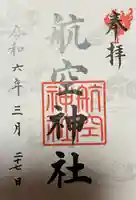 奉拝
航空神社
航空
神社
令和六年三月
二十七日